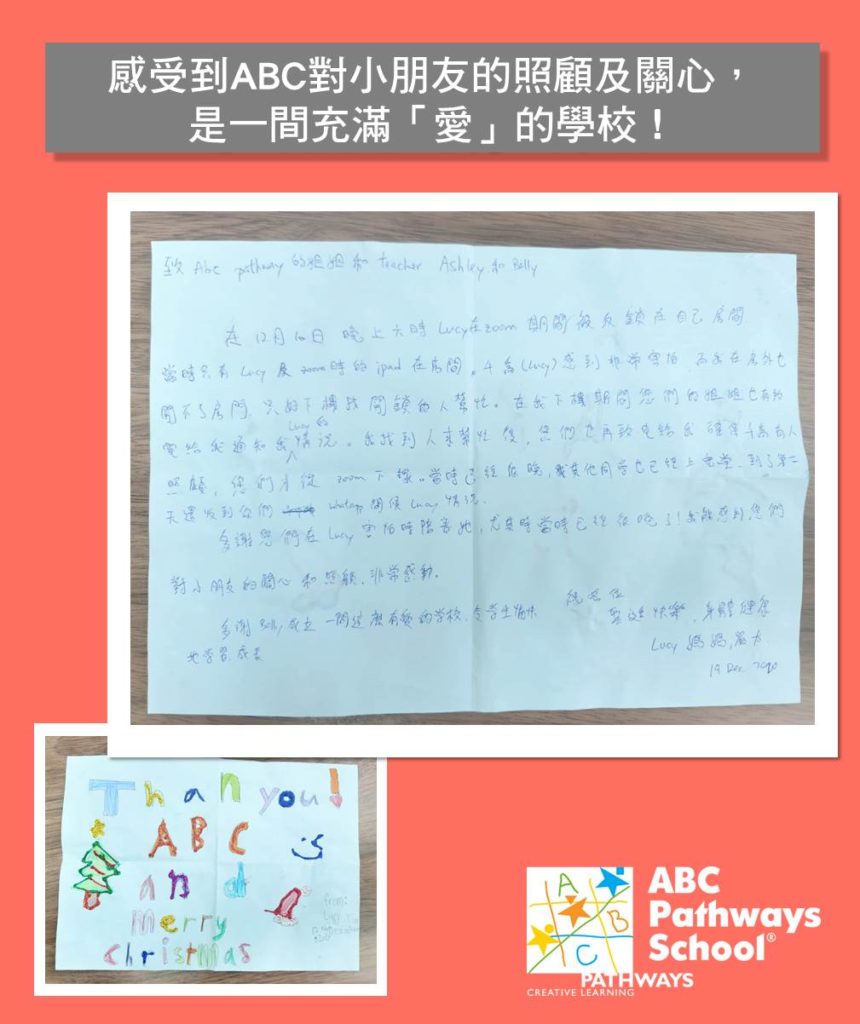 感受到ABC對小朋友的照顧及關心，
是一間充滿「愛」的學校！
致 Abc pathway 的姐姐和 teacher Ashley 和 Billy
在12月16日 晚上六時 Lucy在zoom 期間被反鎖在自己房間
當時只有 Lucy 及 zoom時的 ipad 在房間。千喬(Lucy)感到非常害怕，而我在房外也
開不了房門，只好下樓找開鎖的人幫忙。在我下樓期間您們的姐姐也有致
電給我通知我Lucy的情況。我找到人來幫忙後，您們也再致電給我確保千喬有人
照顧，您們才從 zoom 下線。當時已經很晚，其他同學也已經上完堂。到了第二
天還收到你們 whatapp 問候 Lucy 情況。
多謝您們在 Lucy 害怕時陪着她，尤其時當時已經很晚了！我能感到您們
對小朋友的關心和照顧，非常感動。
多謝 成立一間這麼有愛的學校，令學生愉快
地學習成長
祝各位
聖誕快樂，身體健康
Lucy 媽媽,
19 Dec 2020
Thank you!
ABC
and
merry
christmas
from:
A
B
C
ABC
Pathways
School®
PATHWAYS
CREATIVE LEARNING